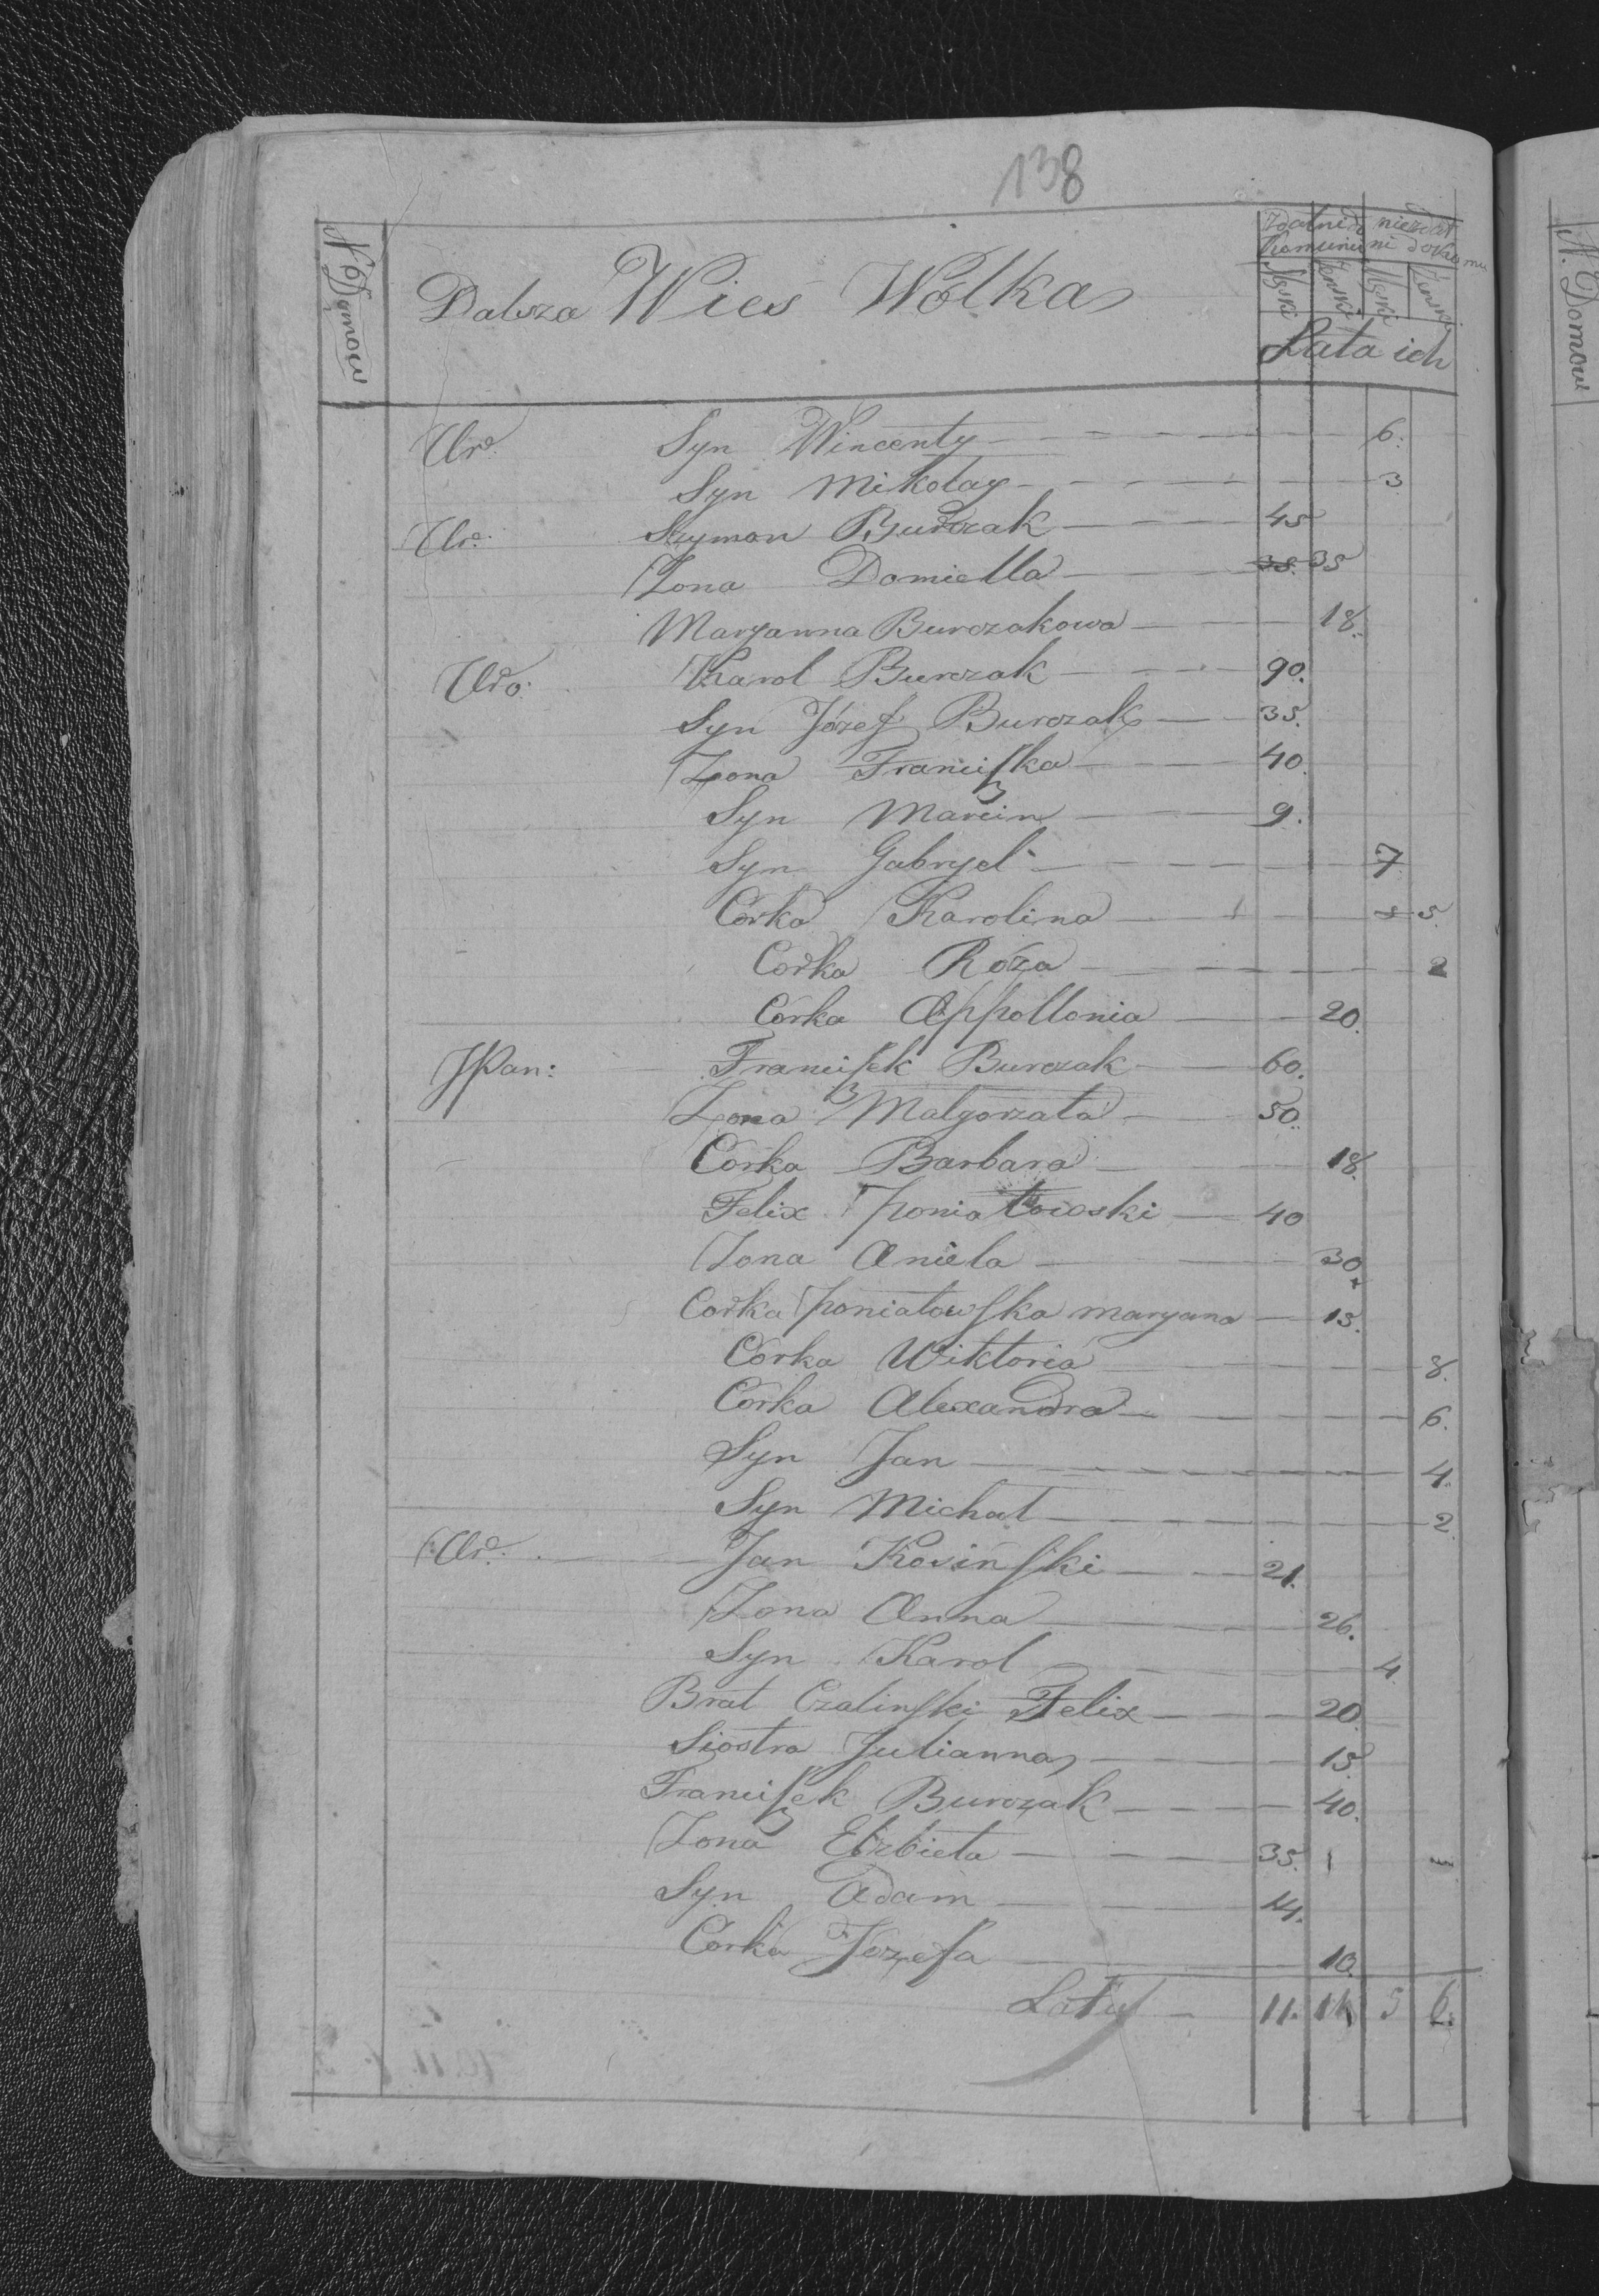 138
N Domow
Dalsza Wieś Wolka
Zdatni do niezdat
Komunii ni do komu
Męski Żenski Męski Żenski
Lata ich
Ur. Syn Wincenty 6.
Syn Mikołay 3
Ur. Szymon Burczak 45
Zona Domiella 38. 35
Maryanna Burczakowa 18.
Uro. Karol Burczak 90.
Syn Józef Burczak 35.
Zona Franciszka 40.
Syn Marcin 9.
Syn Gabryel 7.
Corka Karolina 5 5.
Corka Róza 2
Corka Appollonia 20.
JPan: Franciszek Burczak 60.
Zona Malgorzata 50.
Corka Barbara 18.
Felix Poniatowski 40
Zona Aniela 30
Corka Poniatowska Maryana 15.
Corka Wiktoria 8.
Corka Alexandra 6.
Syn Jan 4.
Syn Michał 2.
Ur. Jan Kosiński 21.
Zona Anna 26.
Syn Karol 4
Brat Czalinski Felix 20.
Siostra Julianna 15.
Franciszek Burczak 40.
Zona Elzbieta 35.
Syn Adam 14.
Corka Jozefa 10.
Latus 11. 14 5 6.
N. Domow